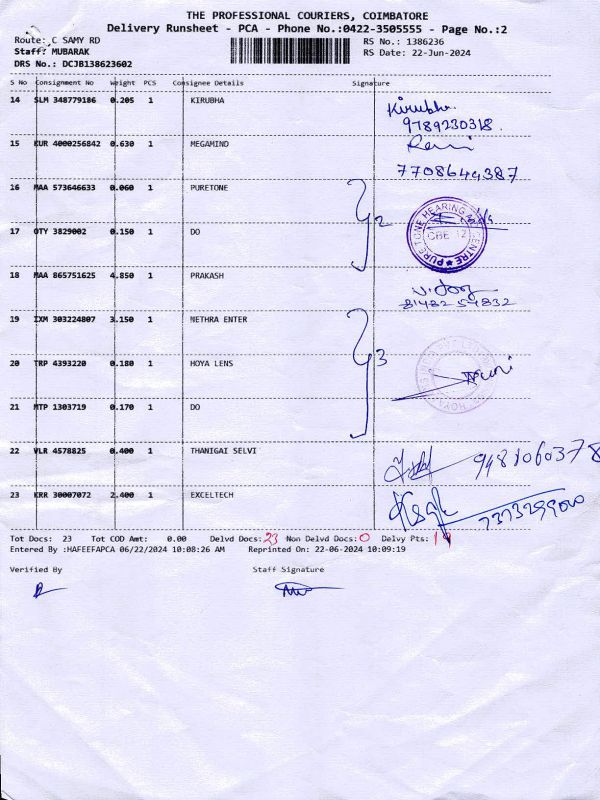 THE PROFESSIONAL COURIERS, COIMBATORE
Delivery Runsheet - PCA - Phone No.:0422-3505555 - Page No.:2
Route: C SAMY RD RS No.: 1386236
Staff: MUBARAK RS Date: 22-Jun-2024
DRS No.: DCJB138623602
S No Consignment No Weight PCS Consignee Details Signature
14 SLM 348779186 0.205 1 KIRUBHA Kirubha.
9789230318
15 KUR 4000256842 0.630 1 MEGAMIND
7708644387
16 MAA 573646633 0.060 1 PURETONE
2
PURE TONE HEARING AID CENTRE
CBE 12
17 OTY 3829002 0.150 1 DO
18 MAA 865751625 4.850 1 PRAKASH
8148254832
19 IXM 303224807 3.150 1 NETHRA ENTER
20 TRP 4393220 0.180 1 HOYA LENS
3
21 MTP 1303719 0.170 1 DO
22 VLR 4578825 0.400 1 THANIGAI SELVI
9481060378
23 KRR 30007072 2.400 1 EXCELTECH
7373299000
Tot Docs: 23 Tot COD Amt: 0.00 Delvd Docs: 23 Non Delvd Docs: 0 Delvy Pts:
Entered By :HAFEEFAPCA 06/22/2024 10:08:26 AM Reprinted On: 22-06-2024 10:09:19
Verified By Staff Signature